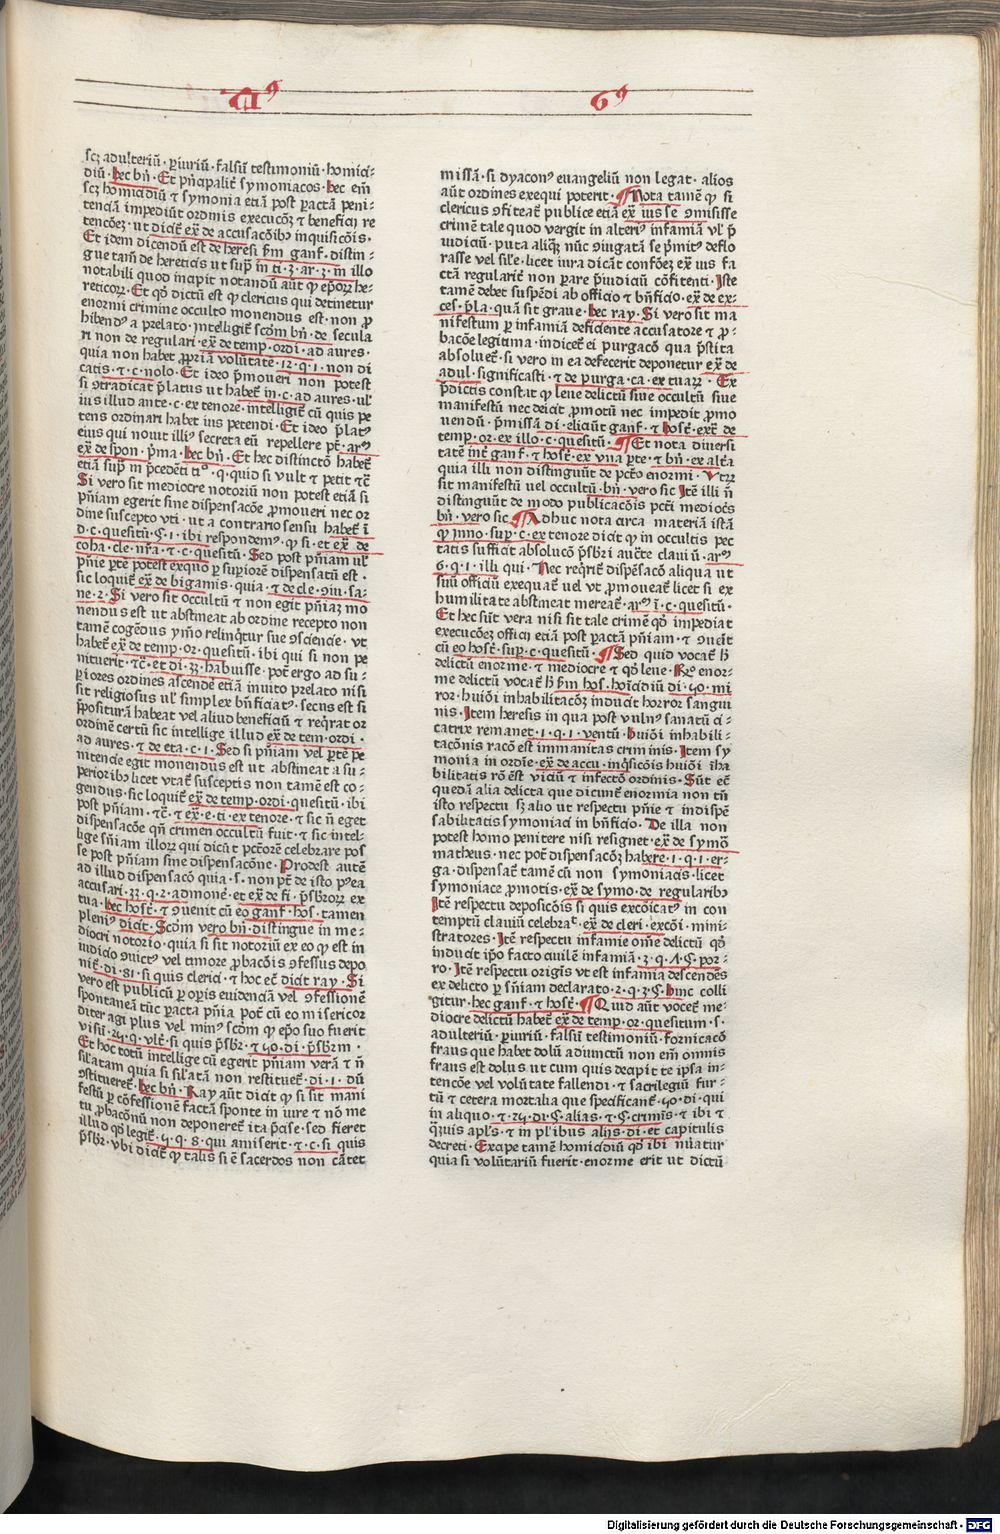 scꝫ adulteriū · ꝑiuriū · falsū testimoniū · homici⸗
diū · hec bñ · Et pñcipalit̉ symoniacos · hec em̄
scꝫ homicidiū ⁊ symonia etiā post ꝑactā peni⸗
tenciā impediūt ordinis execucōꝫ ⁊ beneficij re
tencōeꝫ · ut dicit̉ ex̄ de accusacōibꝫ inquisicōis ·
Et idem dicendū est de heresi fm̄ ganf · distin⸗
gue tam̄ de hereticis ut sup̄ in ti · 3 · ar · 3 · in illo
notabili quod incipit notandū aūt ꝙ ep̄oꝝ he⸗
reticoꝝ · Et qꝰ dictū est ꝙ clericus qui detinetur
enormi crimine occulto monendus est · non ꝓ
hibendꝰ a prelato · intelligit̉ scdm bñ · de secula
ri non de regulari · ex̄ de temp · ordi · ad aures ·
quia non habet ꝓpriā volūtatē · 12 · q · 1 · non di
catis · ⁊ · c · nolo · Et ideo ꝓmoueri non potest
si ꝯtradicat p̄latus ut habet̉ in · c · ad aures · ul̉
ius illud ante · c · ex tenore · intelligit̉ cū quis pe
tens ordinari habet ius petendi · Et ideo p̄latꝰ
eius qui nouit illiꝰ secreta eū repellere pt̄ · arꝰ
ex̄ de spon · p̄ma · hec bñ · Et hec distinctō habet̉
etiā sup̄ in p̄cedēti tiº · q · quid si vult ⁊ petit ⁊c̄
Si vero sit mediocre notoriū non potest etiā si
pñiam egerit sine dispensacōe ꝓmoueri nec or
dine suscepto vti · ut a contrario sensu habet̉ ī
d · c · quesitū · § · 1 · ibi respondemꝰ · ꝙ si · et ex̄ de
coha · cle · nr̄a · ⁊ · c · quesitū · Sed post pñiam ul̉
pñie ꝑtē potest exquo ꝑ suꝑiorē dispensatū est ·
sic loquit̉ ex̄ de bigamis · quia · ⁊ de cle · ꝯiu · sa⸗
ne · 2 · Si vero sit occultū ⁊ non egit pñiaꝫ mo
nendus est ut abstineat ab ordine recepto non
tamē cogēdus ymo relinq̄tur sue ꝯsciencie · vt
habet̉ ex̄ de temp · or · quesitū · ibi qui si non pe
nituerit · ⁊c̄ · et di · 33 · habuisse · pot̉ ergo ad su⸗
ꝑiores ordines ascendē etiā inuito prelato nisi
sit religiosus ul̉ simplex bñficiatꝰ · secus est si
p̄positurā habeat vel aliud beneficiū ⁊ req̄rat or
ordinē certū sic intellige illud ex̄ de tem · ordi ·
ad aures · ⁊ de eta · c · 1 · Sed si pñiam vel ꝑtē pe
nitencie egit monendus est ut abstineat a su⸗
perioribꝫ licet vtat̉ susceptis non tamē est co⸗
gendus · sic loquit̉ ex̄ de temp · ordi · quesitū · ibi
post pñiam · ⁊c̄ · ⁊ ex̄ · e · ti · ex tenore · ⁊ sic ñ eget
dispensacōe qñ crimen occultū fuit · ⁊ sic intel⸗
lige sñiam illoꝝ qui dicūt pctōrē celebrare pos
se post pñiam sine dispensacōne · Prodest autē
ad illud dispensacō quia · s · non pt̄ de isto p̄ea
accusari · 33 · q · 2 · admone · et ex̄ de fi · p̄sbꝛoꝝ ex
tua · hec host̄ · ⁊ ꝯuenit cū eo ganf · hos · tamen
pleniꝰ dicit · Scdm vero bñ · distingue in me⸗
diocri notorio · quia si sit notoriū ex eo ꝙ est in
iudicio ꝯuictꝰ vel timore ꝓbacōis ꝯfessus depo
nit̉ · di · 81 · si quis clerici · ⁊ hoc ec̄ dicit ray · Si
vero est publicū ꝑ oꝑis euidenciā vel ꝯfessionē
spontaneā tūc ꝑacta pñia pot̉ cū eo misericor
diter agi plus vel minꝰ scdm ꝙ ep̄o suo fuerit
visū · 24 · q · vlt̄ · si quis p̄sbr · ⁊ 50 · di · p̄sbrm ·
Et hoc totū intellige cū egerit pñiam verā ⁊ ñ
sil̉atam quia si sil̉atā non restituet̉ · di · 1 · dū
ꝯstitueret̉ · hec bñ · Ray aūt dicit ꝙ si sit mani
festū ꝑ cōfessionē factā sponte in iure ⁊ nō me
tu ꝓbacōnū non deponeret̉ ita p̄cise · sed fieret
illud qꝺ legit̉ · 5 · q · 8 · qui amiserit · ⁊ · c · si quis
p̄sbꝛ · vbi dicit̉ ꝙ talis si ē sacerdos non cātet
missā · si dyaconꝰ euangeliū non legat · alios
aūt ordines exequi poterit · ¶ Nota tamē ꝙ si
clericus ꝯfiteat̉ publice etiā ex̄ ius se ꝯmisisse
crimē tale quod vergit in alteriꝰ infamiā vl̉ p̄
iudiciū · puta aliqꝫ nūc ꝯiugatā se p̄mitꝰ deflo
rasse vel sil̉e · licet iura dicāt confōeꝫ ex̄ ius fa
ctā regularit̉ non parare p̄iudiciū cōfitenti · Iste
tamē debet suspēdi ab officio ⁊ bñficio · ex̄ de ex⸗
ces · p̄la · quā sit graue · hec ray · Si vero sit ma
nifestum ꝑ infamiā deficiente accusatore ⁊ ꝓ⸗
bacōe legitima · indicet̉ ei purgacō qua p̄stita
absoluet̉ · si vero in ea defecerit deponetur ex̄ de
adul · significasti · ⁊ de purga · ca · ex tuaꝝ · Ex
p̄dictis constat ꝙ leue delictū siue occultū siue
manifestū nec deicit ꝓmotū nec impedit ꝓmo
uendū · p̄missā di · eliciūt ganf · ⁊ host̄ · ext̄ de
temp · or · ex illo · c · quesitū · ¶ Et nota diuersi
tatē int̉ ganf · ⁊ host̄ · ex vna ꝑte · ⁊ bñ · ex alt̉a
quia illi non distinguūt de pctō enormi · Vtꝝ
sit manifestū uel occultū · bñ · vero sic Itē illi ñ
distinguūt de modo publicacōis pcti mediocr̉s
bñ · vero sic ¶ Adhuc nota circa materiā istā
ꝙ ynno · sup · c · ex tenore dicit ꝙ in occultis pec
tatis sufficit absolucō p̄sbri aucte clauiū · arꝰ
6 · q · 1 · illi qui · Nec req̄rit̉ dispēsacō aliqua ut
suū officiū exequat̉ vel vt ꝓmoueat̉ licet si ex
humilitate abstineat mereat̉ · arꝰ ī · c · quesitū ·
Et hec sūt vera nisi sit tale crimē qꝺ impediat
execucōeꝫ officij etiā post ꝑactā pñiam · ⁊ ꝯueit̉
cū eo host̄ · sup · c · quesitū · ¶ Sed quid vocat̉ ħ
delictū enorme · ⁊ mediocre ⁊ qꝺ leue · Rº enor⸗
me delictū vocat̉ ħ fm̄ hos · hoi̅cidiū di · 50 · mi
ror · huiōi inhabilitacōꝫ inducit horror sangui
nis · Item heresis in qua post vulnꝰ sanatū ci⸗
catrix remanet · 1 · q · 1 · ventū · huiōi inhabili⸗
tacōnis racō est immanitas criminis · Item sy
monia in ordīe · ex̄ de accu · inqͥsicōis huiōi īha
bilitatis rō ē̉st viciū ⁊ infectō ordinis · Sūt ec̄
quedā alia delicta que dicunt̉ enormia non tñ
isto respectu sꝫ alio ut respectu pñie ⁊ indispē
sabilitatis symoniaci in bñficio · De illa non
potest homo penitere nisi resignet · ex̄ de symō
matheus · nec pot̉ dispensacōꝫ habere · 1 · q · 1 · er⸗
ga · dispensat̉ tamē cū non symoniacis · licet
symoniace ꝓmotis · ex̄ de symo · de regularibꝫ
Itē respectu deposicōis si quis excōicatꝰ in con
temptū clauiū celebrat̉ · ex̄ de cleri · excōi · mini⸗
stratores · Itē respectu infamie om̄e delictū qꝺ
inducit ip̄o facto ciuilē infamiā · 3 · q · A · § · por⸗
ro · Itē respectu origīs vt est infamia descendēs
ex delicto ꝑ sñiam declarato · 2 · q · 3 · § · hinc colli
gitur · hec ganf · ⁊ host̄ · ¶ Quid aūt vocet̉ me⸗
diocre delictū habet̉ ex̄ de temp · or · quesitum · s ·
adulteriū · ꝑiuriū · falsū testimoniū · fornicacō
fraus que habet dolū adiunctū non em̄ omnis
fraus est dolus ut cum quis decipit te ipsa in⸗
tencōe vel volūtate fallendi · ⁊ sacrilegiū fur⸗
tū ⁊ cetera mortalia que specificant̉ · 50 · di · qui
in aliquo · ⁊ 25 · di · § · alias · ⁊ § · crimīs · ⁊ ibi ⁊
q̄uis apl̉s · ⁊ in pl̉ibus alijs · di · et capitulis
decreti · Excipe tamē homicidiū qꝺ ibi nūatur
quia si volūtariū fuerit · enorme erit ut dictū
Digitalisierung gefördert durch die Deutsche Forschungsgemeinschaft · DFG